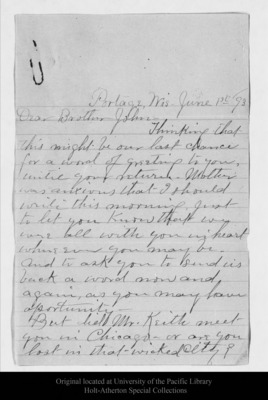 Portage, Wis. June 1st /93
Dear Brother John:
Thinking that
this might be our last chance
for a word of greeting to you,
until your return. Mother
was anxious that I should
write this morning, just
to let you know that we
were all with you in heart
wherever you may be.
And to ask you to send us
back a word now and
again, as you may have
oportunity.
But did Mr. Keith meet
you in Chicago - or are you
lost in that wicked City?
Original located at University of the Pacific Library
Holt-Atherton Special Collections